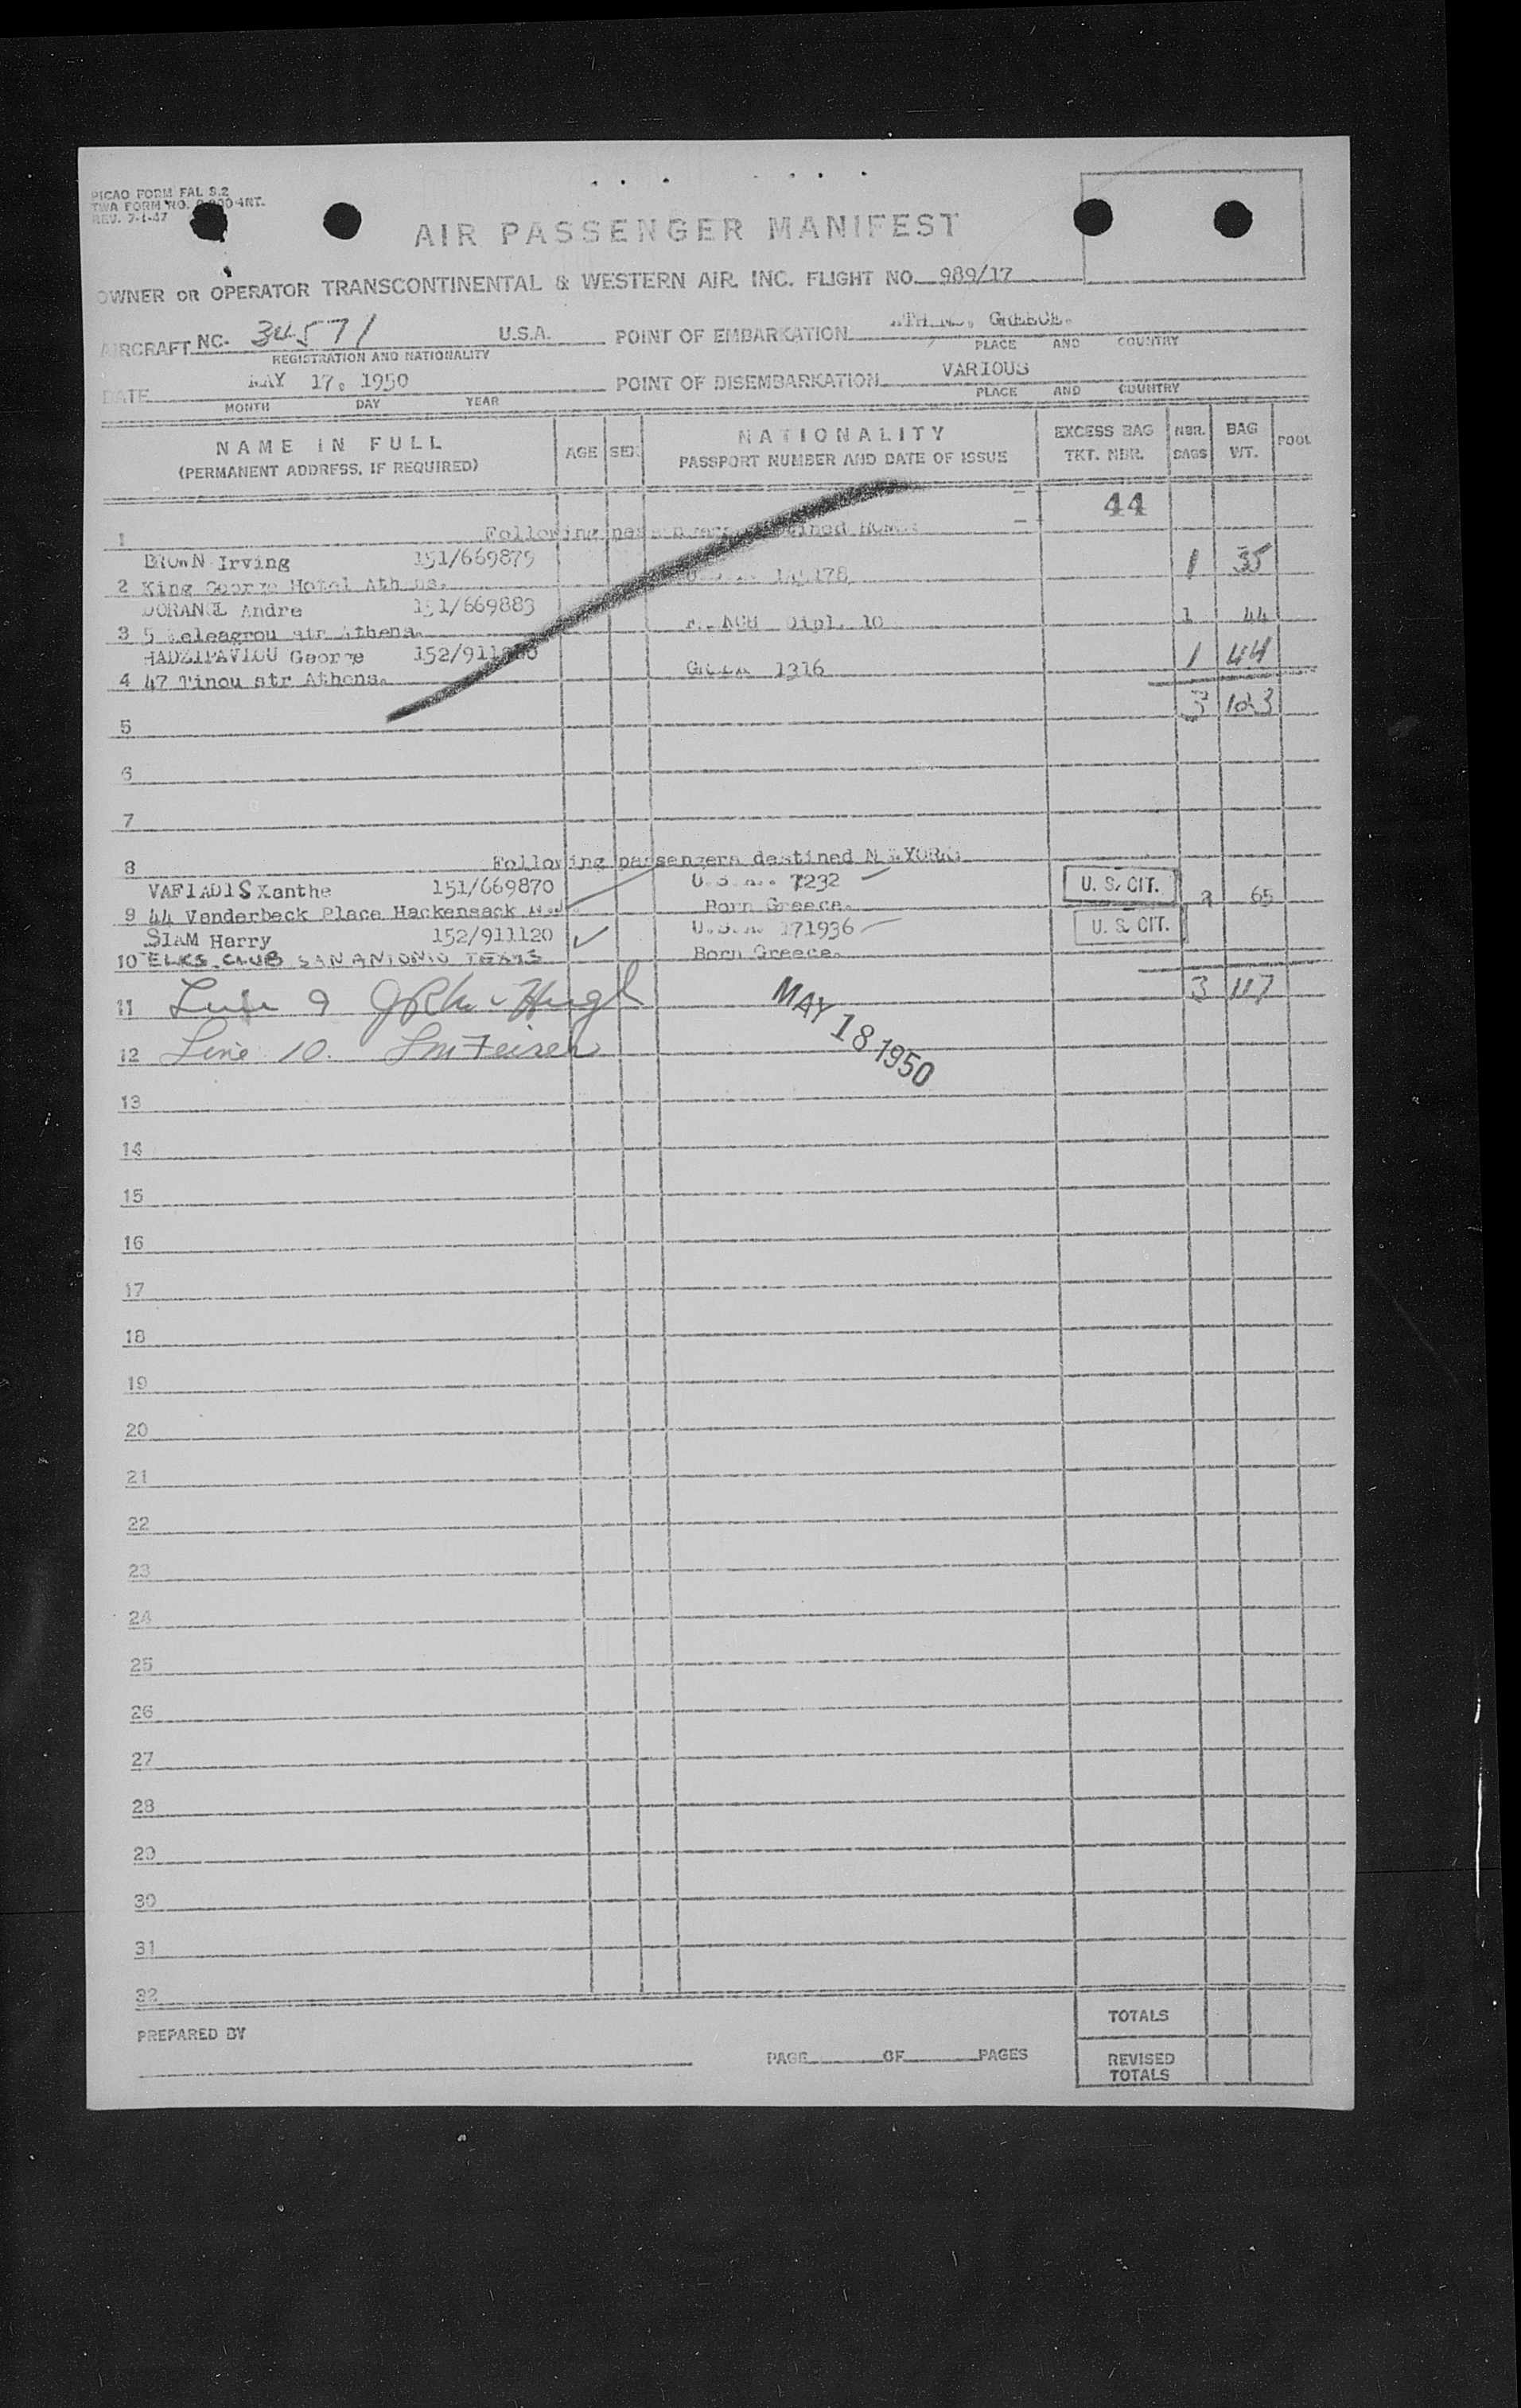 PICAO FORM FAL 3.2
TWA FORM NO. 4NT.
REV. 7-1-47
AIR PASSENGER MANIFEST
OWNER OR OPERATOR TRANSCONTINENTAL & WESTERN AIR. INC. FLIGHT NO. 989/17
AIRCRAFT NC. 34571 U.S.A. POINT OF EMBARKATION GREECE.
REGISTRATION AND NATIONALITY PLACE AND COUNTRY
DATE MAY 17, 1950 POINT OF DISEMBARKATION VARIOUS
MONTH DAY YEAR PLACE AND COUNTRY
NAME IN FULL AGE SEX NATIONALITY EXCESS BAG NBR. BAG POOL
(PERMANENT ADDRESS, IF REQUIRED) PASSPORT NUMBER AND DATE OF ISSUE TKT. NBR. BAGS WT.
44
1 Following passengers destined
BROWN Irving 151/669879 1 35
2 King George Hotel Athens.
Andre 151/669883 1 44
3 5 str Athens. Dipl. 10
HADZIPAVLOU George 1 44
4 47 Tinou str Athens. 1316
3 123
5
6
7
8 Following passengers destined NEWYORK
VAFIADIS Xanthe 151/669870 7232 U. S. CIT.
9 44 Vanderbeck Place Hackensack N.J. Born Greece. 65
SIAM Harry 152/911120 171936 U. S. CIT.
10 ELKS CLUB SAN ANTONIO TEXAS Born Greece.
11 Line 9 3 117
MAY 18 1950
12 Line 10.
13
14
15
16
17
18
19
20
21
22
23
24
25
26
27
28
29
30
31
32
PREPARED BY TOTALS
PAGE OF PAGES REVISED
TOTALS